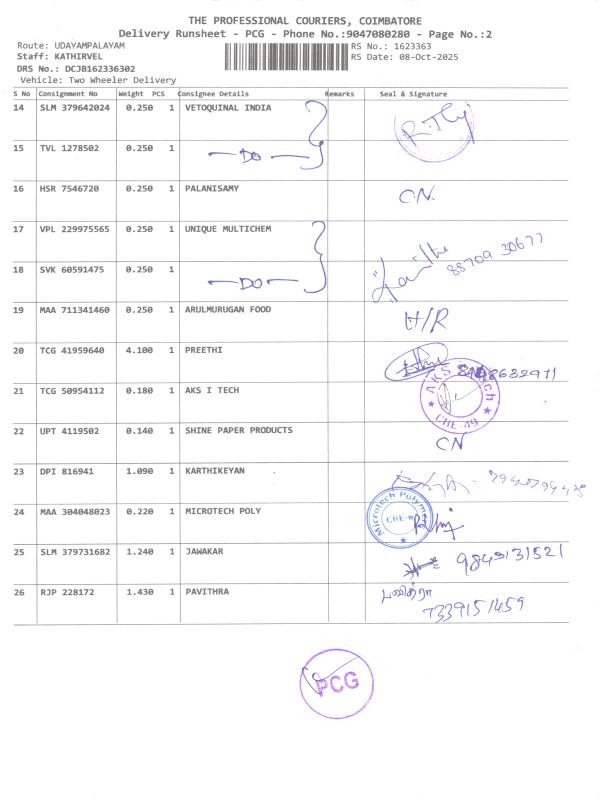 THE PROFESSIONAL COURIERS, COIMBATORE
Delivery Runsheet - PCG - Phone No.:9047080280 - Page No.:2
Route: UDAYAMPALAYAM
RS No.: 1623363
Staff: KATHIRVEL
RS Date: 08-Oct-2025
DRS No.: DCJB162336302
Vehicle: Two Wheeler Delivery
S No Consignment No Weight PCS Consignee Details Remarks Seal & Signature
14 SLM 379642024 0.250 1 VETOQUINAL INDIA
15 TVL 1278502 0.250 1 —DO—
16 HSR 7546720 0.250 1 PALANISAMY CN.
17 VPL 229975565 0.250 1 UNIQUE MULTICHEM
88709 30677
18 SVK 60591475 0.250 1 —DO—
19 MAA 711341460 0.250 1 ARULMURUGAN FOOD H/R
20 TCG 41959640 4.100 1 PREETHI
21 TCG 50954112 0.180 1 AKS I TECH
AKS CBE-49
22 UPT 4119502 0.140 1 SHINE PAPER PRODUCTS CN
23 DPI 816941 1.090 1 KARTHIKEYAN
24 MAA 304048023 0.220 1 MICROTECH POLY
Microtech Polymer
25 SLM 379731682 1.240 1 JAWAKAR
26 RJP 228172 1.430 1 PAVITHRA பவித்ரா
7339151459
PCG